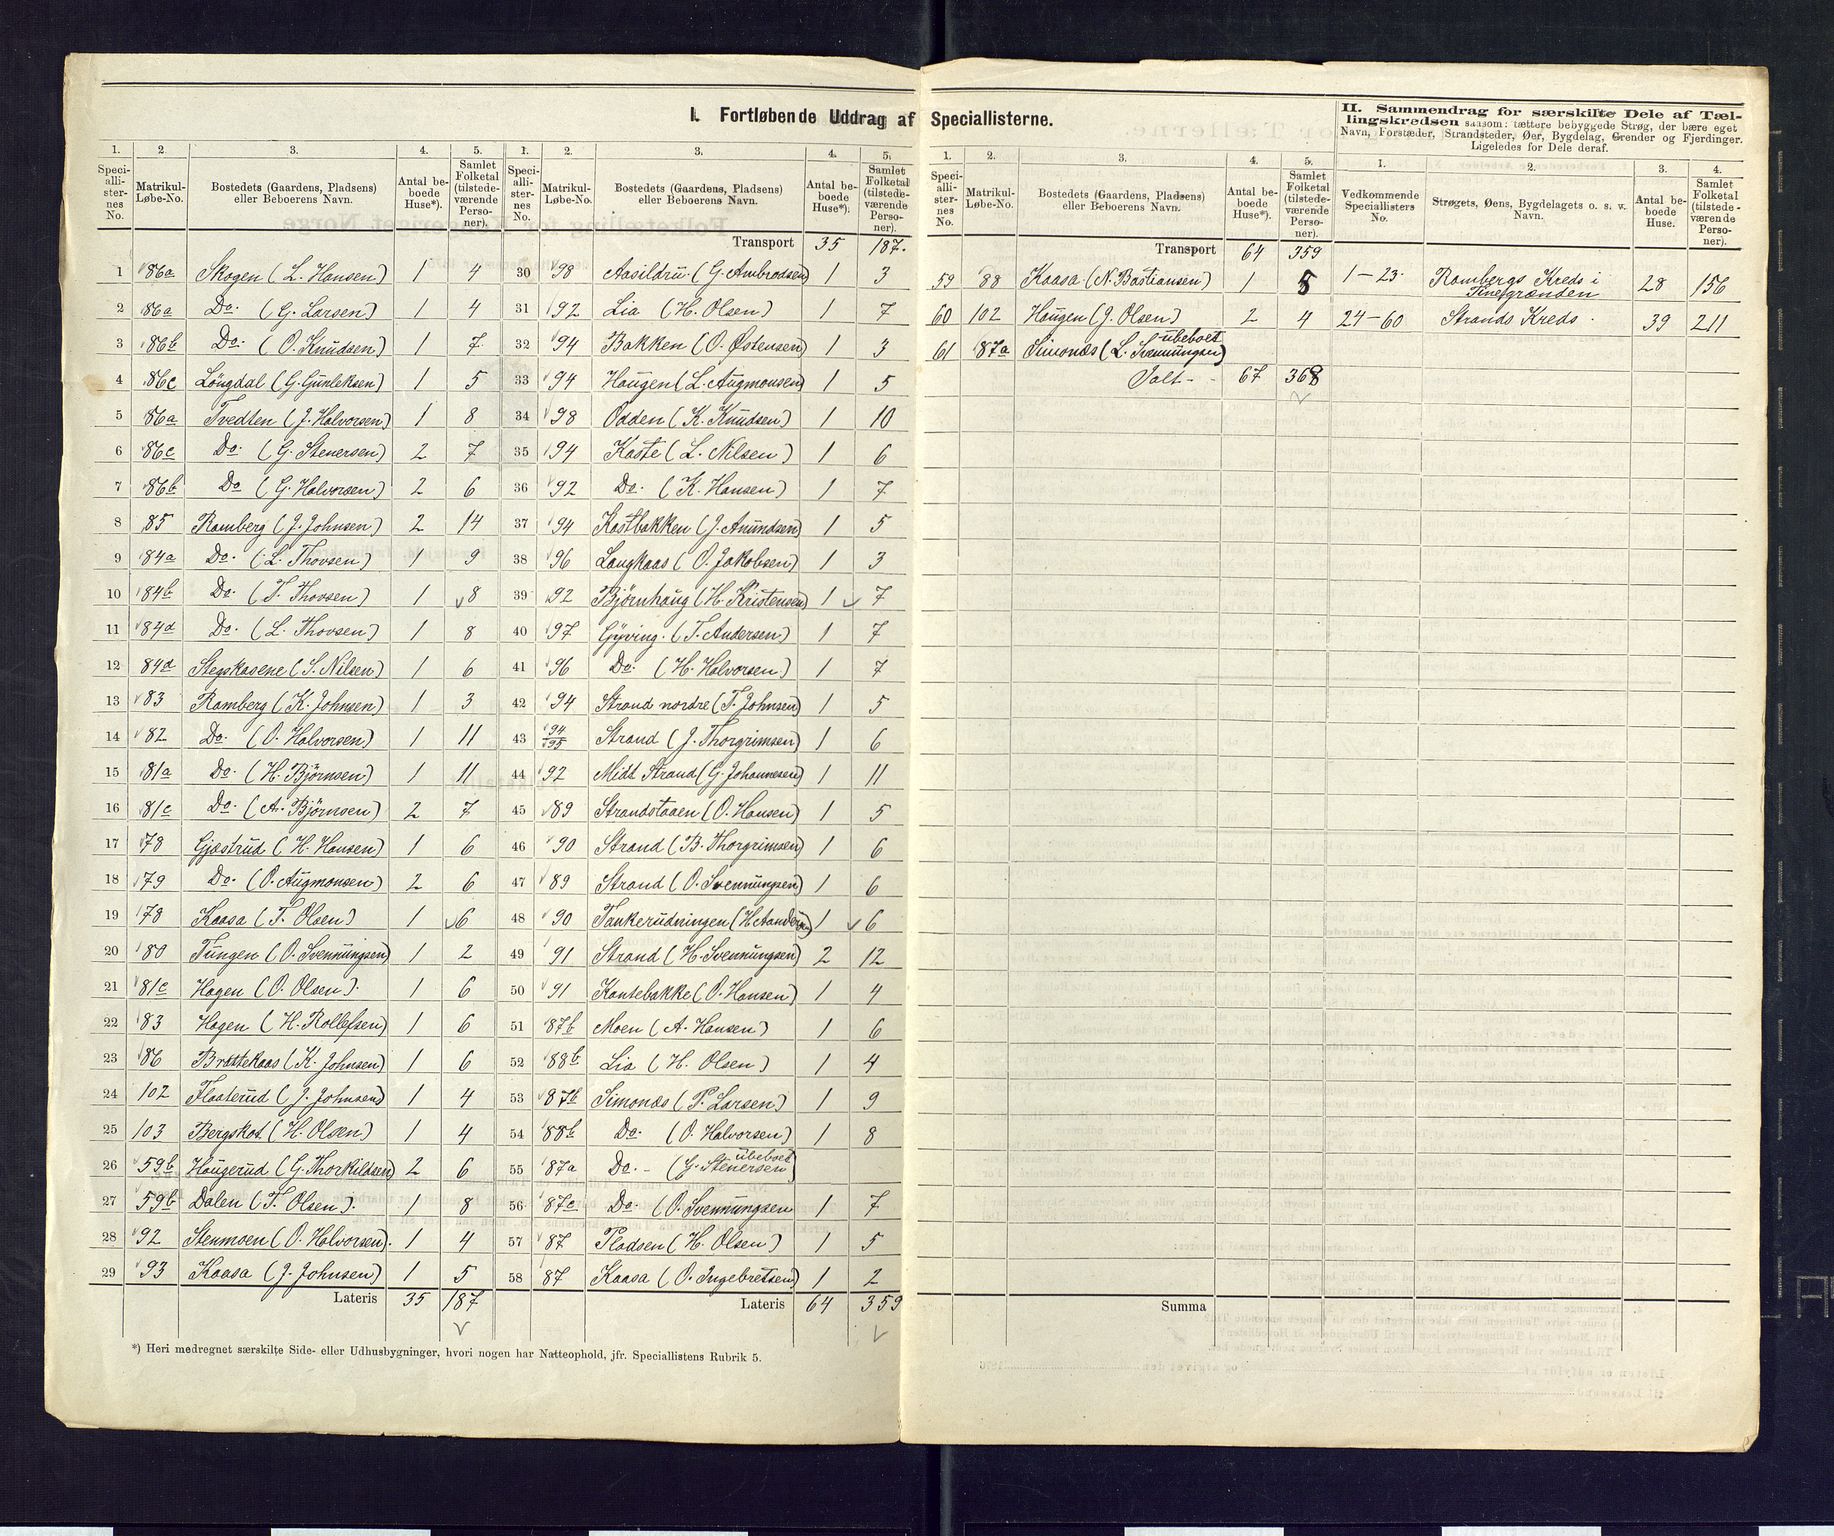 I. Fortløbende Uddrag af Speciallisterne.
II. Sammendrag for særskilte Dele af Tællingskredsen saasom: tættere bebyggede Strøg, der bære eget
Navn, Forstæder, Strandsteder, Øer, Bygdelag, Grender og Fjerdinger.
Ligeledes for Dele deraf.
1. Speciallisternes No. 2. Matrikul-Løbe-No. 3. Bostedets (Gaardens, Pladsens) eller Beboerens Navn. 4. Antal beboede Huse*). 5. Samlet Folketal (tilstedeværende Personer).
1 86a Skogen (L. Hansen) 1 4
2 86a Do. (G. Larsen) 1 4
3 86b Do. (O. Knudsen) 1 7
4 86c Löugdal (G. Gunleksen) 1 5
5 86a Tvedten (J. Halvorsen) 1 8
6 86c Do. (G. Stenersen) 2 7
7 86b Do (G. Halvorsen) 2 6
8 85 Ramberg (J. Johnsen) 2 14
9 84a Do. (L. Thovsen) 1 9
10 84b Do. (T. Thovsen) 1 8
11 84d Do. (L. Thovsen) 1 8
12 84d Stegskasene (S. Nilsen) 1 6
13 83 Ramberg (K. Johnsen) 1 3
14 82 Do. (O. Halvorsen) 1 11
15 81a Do. (H. Björnsen) 1 11
16 81c Do. (A. Björnsen) 2 7
17 78 Gjæstrud (H. Hansen) 1 6
18 79 Do. (O. Augmonsen) 2 6
19 78 Kaasa (T. Olsen) 1 6
20 80 Tungen (O. Svennungsen) 1 2
21 81c Hagen (O. Olsen). 1 6
22 83 Hagen (H. Rollefsen) 1 6
23 86 Brattekaas (K. Johnsen) 1 6
24 102 Flaaterud (J. Johnsen) 1 4
25 103 Bergskot. (H. Olsen) 1 4
26 59b Haugerud (G. Thorkildsen) 2 6
27 59b Dalen (T. Olsen). 1 8
28 92 Stenmoen (O. Halvorsen). 1 4
29 93 Kaasa (J. Johnsen) 1 5
Lateris 35 187
*) Heri medregnet særskilte Side- eller Udhusbygninger, hvori nogen har Natteophold, jfr. Speciallistens Rubrik 5.
1. Speciallisternes No. 2. Matrikul-Løbe-No. 3. Bostedets (Gaardens, Pladsens) eller Beboerens Navn. 4. Antal beboede Huse*). 5. Samlet Folketal (tilstedeværende Personer).
Transport 35 187.
30 98 Aasildru (G. Ambrodsen) 1 3
31 92 Lia (H. Olsen) 1 7
32 94 Bakken (O. Østensen) 1 3
33 94 Haugen (L. Augmonsen) 1 5
34 98 Odden (K. Knudsen) 1 10
35 94 Kaste (L. Nilsen) 1 6
36 92 Do. (K. Hansen) 1 7
37 94 Kastbakken (J. Anundsen) 1 5
38 96 Langkaas (O. Jakobsen) 1 3
39 92 Björnhaug (H. Kristensen) 1 7
40 97 Gyving. (T. Andersen) 1 7
41 96 Do. (H. Halvorsen) 1 7
42 94 Strand nordre (T. Johnsen) 1 5
43 94/95 Strand (J. Thorgrimsen) 1 6
44 92 Midt Strand (G. Johannesen) 1 11
45 89 Strandstaaen (O. Hansen) 1 5
46 90 Strand (B. Thorgrimsen) 1 6
47 89 Strand (O. Svennungsen) 1 6
48 90 Tankerudningen 1 6
49 91 Strand (H. Svennungsen) 2 12
50 91 Kantebakke (O. Hansen) 1 4
51 87b Moen (A. Hansen) 1 6
52 88b Lia (H. Olsen) 1 4
53 87b Simonæs (P. Larsen) 1 9
54 88b Do. (O. Halvorsen) 1 8
55 87a Do. - (G. Stenersen) ubeboet
56 87c Do. (O. Svennungsen 1 7
57 87 Pladsen (H. Olsen) 1 5
58 87 Kaasa (O. Ingebretsen) 1 2
Lateris 64 359
1. Speciallisternes No. 2. Matrikul-Løbe-No. 3. Bostedets (Gaardens, Pladsens) eller Beboerens Navn. 4. Antal beboede Huse*). 5. Samlet Folketal (tilstedeværende Personer).
Transport 64 359
59 88 Kaasa (N. Bastiansen) 1 5
60 102 Haugen (J. Olsen) 2 4
61 87a Simonæs (L. Svennungsen) ubeboet
Ialt - - 67 368
Summa
1. Vedkommende Speciallisters No. 2. Strøgets, Øens, Bygdelagets o. s. v. Navn. 3. Antal beboede Huse. 4. Samlet Folketal (tilstedeværende Personer).
1-23 Rambergs Kreds i Tinegrænden 28 156
24-60 Strands Kreds. 39 211